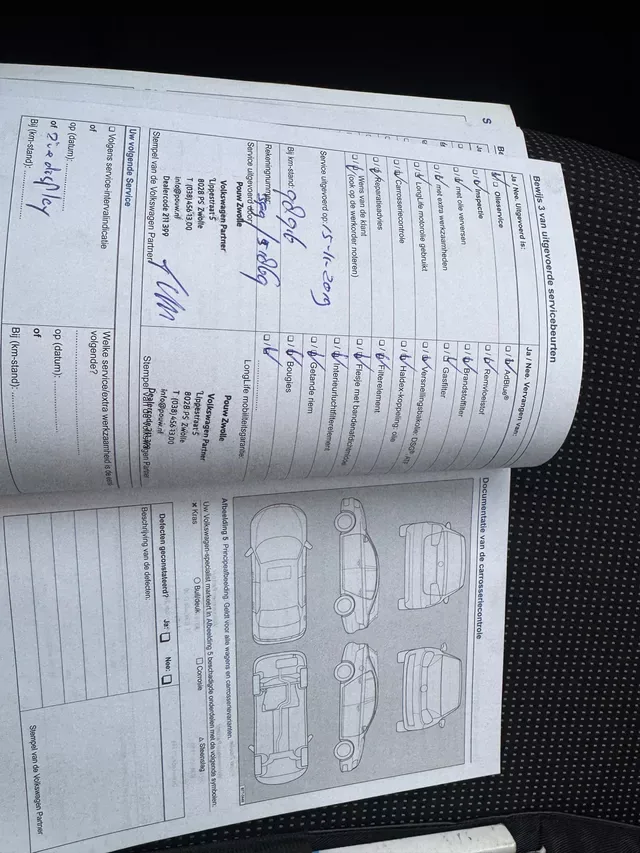 Bewijs 3 van uitgevoerde servicebeurten
Ja / Nee. Uitgevoerd is:
Olieservice
Inspectie
met olie verversen
met extra werkzaamheden
LongLife motorolie gebruikt
Carrosseriecontrole
Reparatieadvies
Wens van de klant
(ook op de werkorder noteren)
Service uitgevoerd op: 15-11-2019
Bij km-stand:
Rekeningnummer:
Service uitgevoerd door:
Pouw Zwolle
Volkswagen Partner
Lippestraat 5
8028 PS Zwolle
T (038) 456 13 00
info@pouw.nl
Dealercode 211 399
Stempel van de Volkswagen Partner
Ja / Nee. Vervangen van:
AdBlue®
Remvloeistof
Brandstoffilter
Gasfilter
Versnellingsbakolie: DSG®
Haldex-koppeling: olie
Filterelement
Flesje met bandenafdichtmiddel
Interieurluchtfilterelement
Getande riem
Bougies
LongLife mobiliteitsgarantie:
Pouw Zwolle
Volkswagen Partner
Lippestraat 5
8028 PS Zwolle
T (038) 456 13 00
info@pouw.nl
Dealercode 211 399
Stempel van de Volkswagen Partner
Uw volgende Service
Volgens service-intervalindicatie
of
op (datum):
of zie display
Bij (km-stand):
Welke service/extra werkzaamheid is de
volgende?
op (datum):
of
Bij (km-stand):
Documentatie van de carrosseriecontrole
Afbeelding 5 Principeafbeelding. Geldt voor alle wagens en carrosserievarianten.
Uw Volkswagen-specialist markeert in Afbeelding 5 beschadigde onderdelen met de volgende symbolen:
x Kras
○ Buil/deuk
□ Corrosie
△ Steenslag
Defecten geconstateerd? Ja: □ Nee: □
Beschrijving van de defecten:
Stempel van de Volkswagen Partner